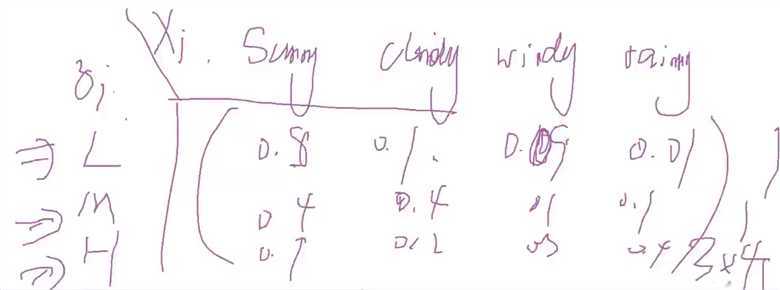 Xj. Sunny cloudy windy rainy
zj
⇒ L 0.8 0.1. 0.09 0.01 1
⇒ M 0.4 0.4 0.1 0.1 1
⇒ H 0.1 0.2 0.3 0.4 3x4